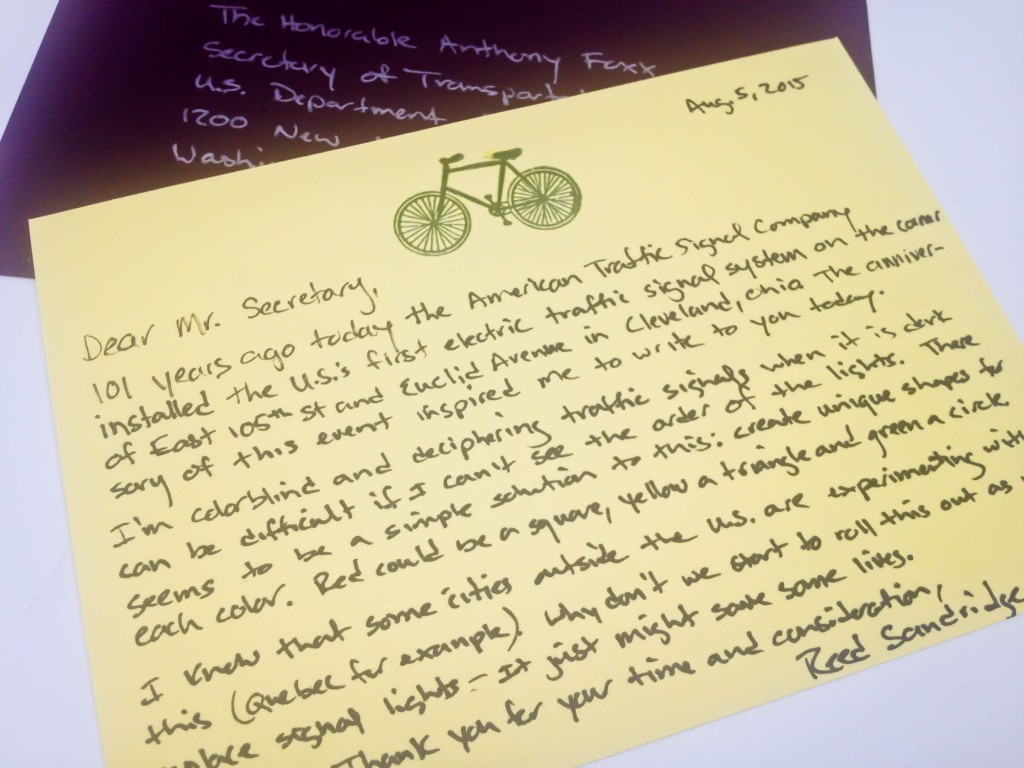 The Honorable Anthony Foxx
Secretary of Transportat
U.S. Department
1200 New
Washi
Aug. 5, 2015
Dear Mr. Secretary,
101 years ago today the American Traffic Signal Company
installed the U.S.'s first electric traffic signal system on the corner
of East 105th St and Euclid Avenue in Cleveland, Ohio The anniver-
sary of this event inspired me to write to you today.
I'm colorblind and deciphering traffic signals when it is dark
can be difficult if I can't see the order of the lights. There
seems to be a simple solution to this: create unique shapes for
each color. Red could be a square, yellow a triangle and green a circle
I know that some cities outside the U.S. are experimenting with
this (Quebec for example). Why don't we start to roll this out as
signal lights - It just might save some lives.
Thank you for your time and consideration,
Reed Sandridge